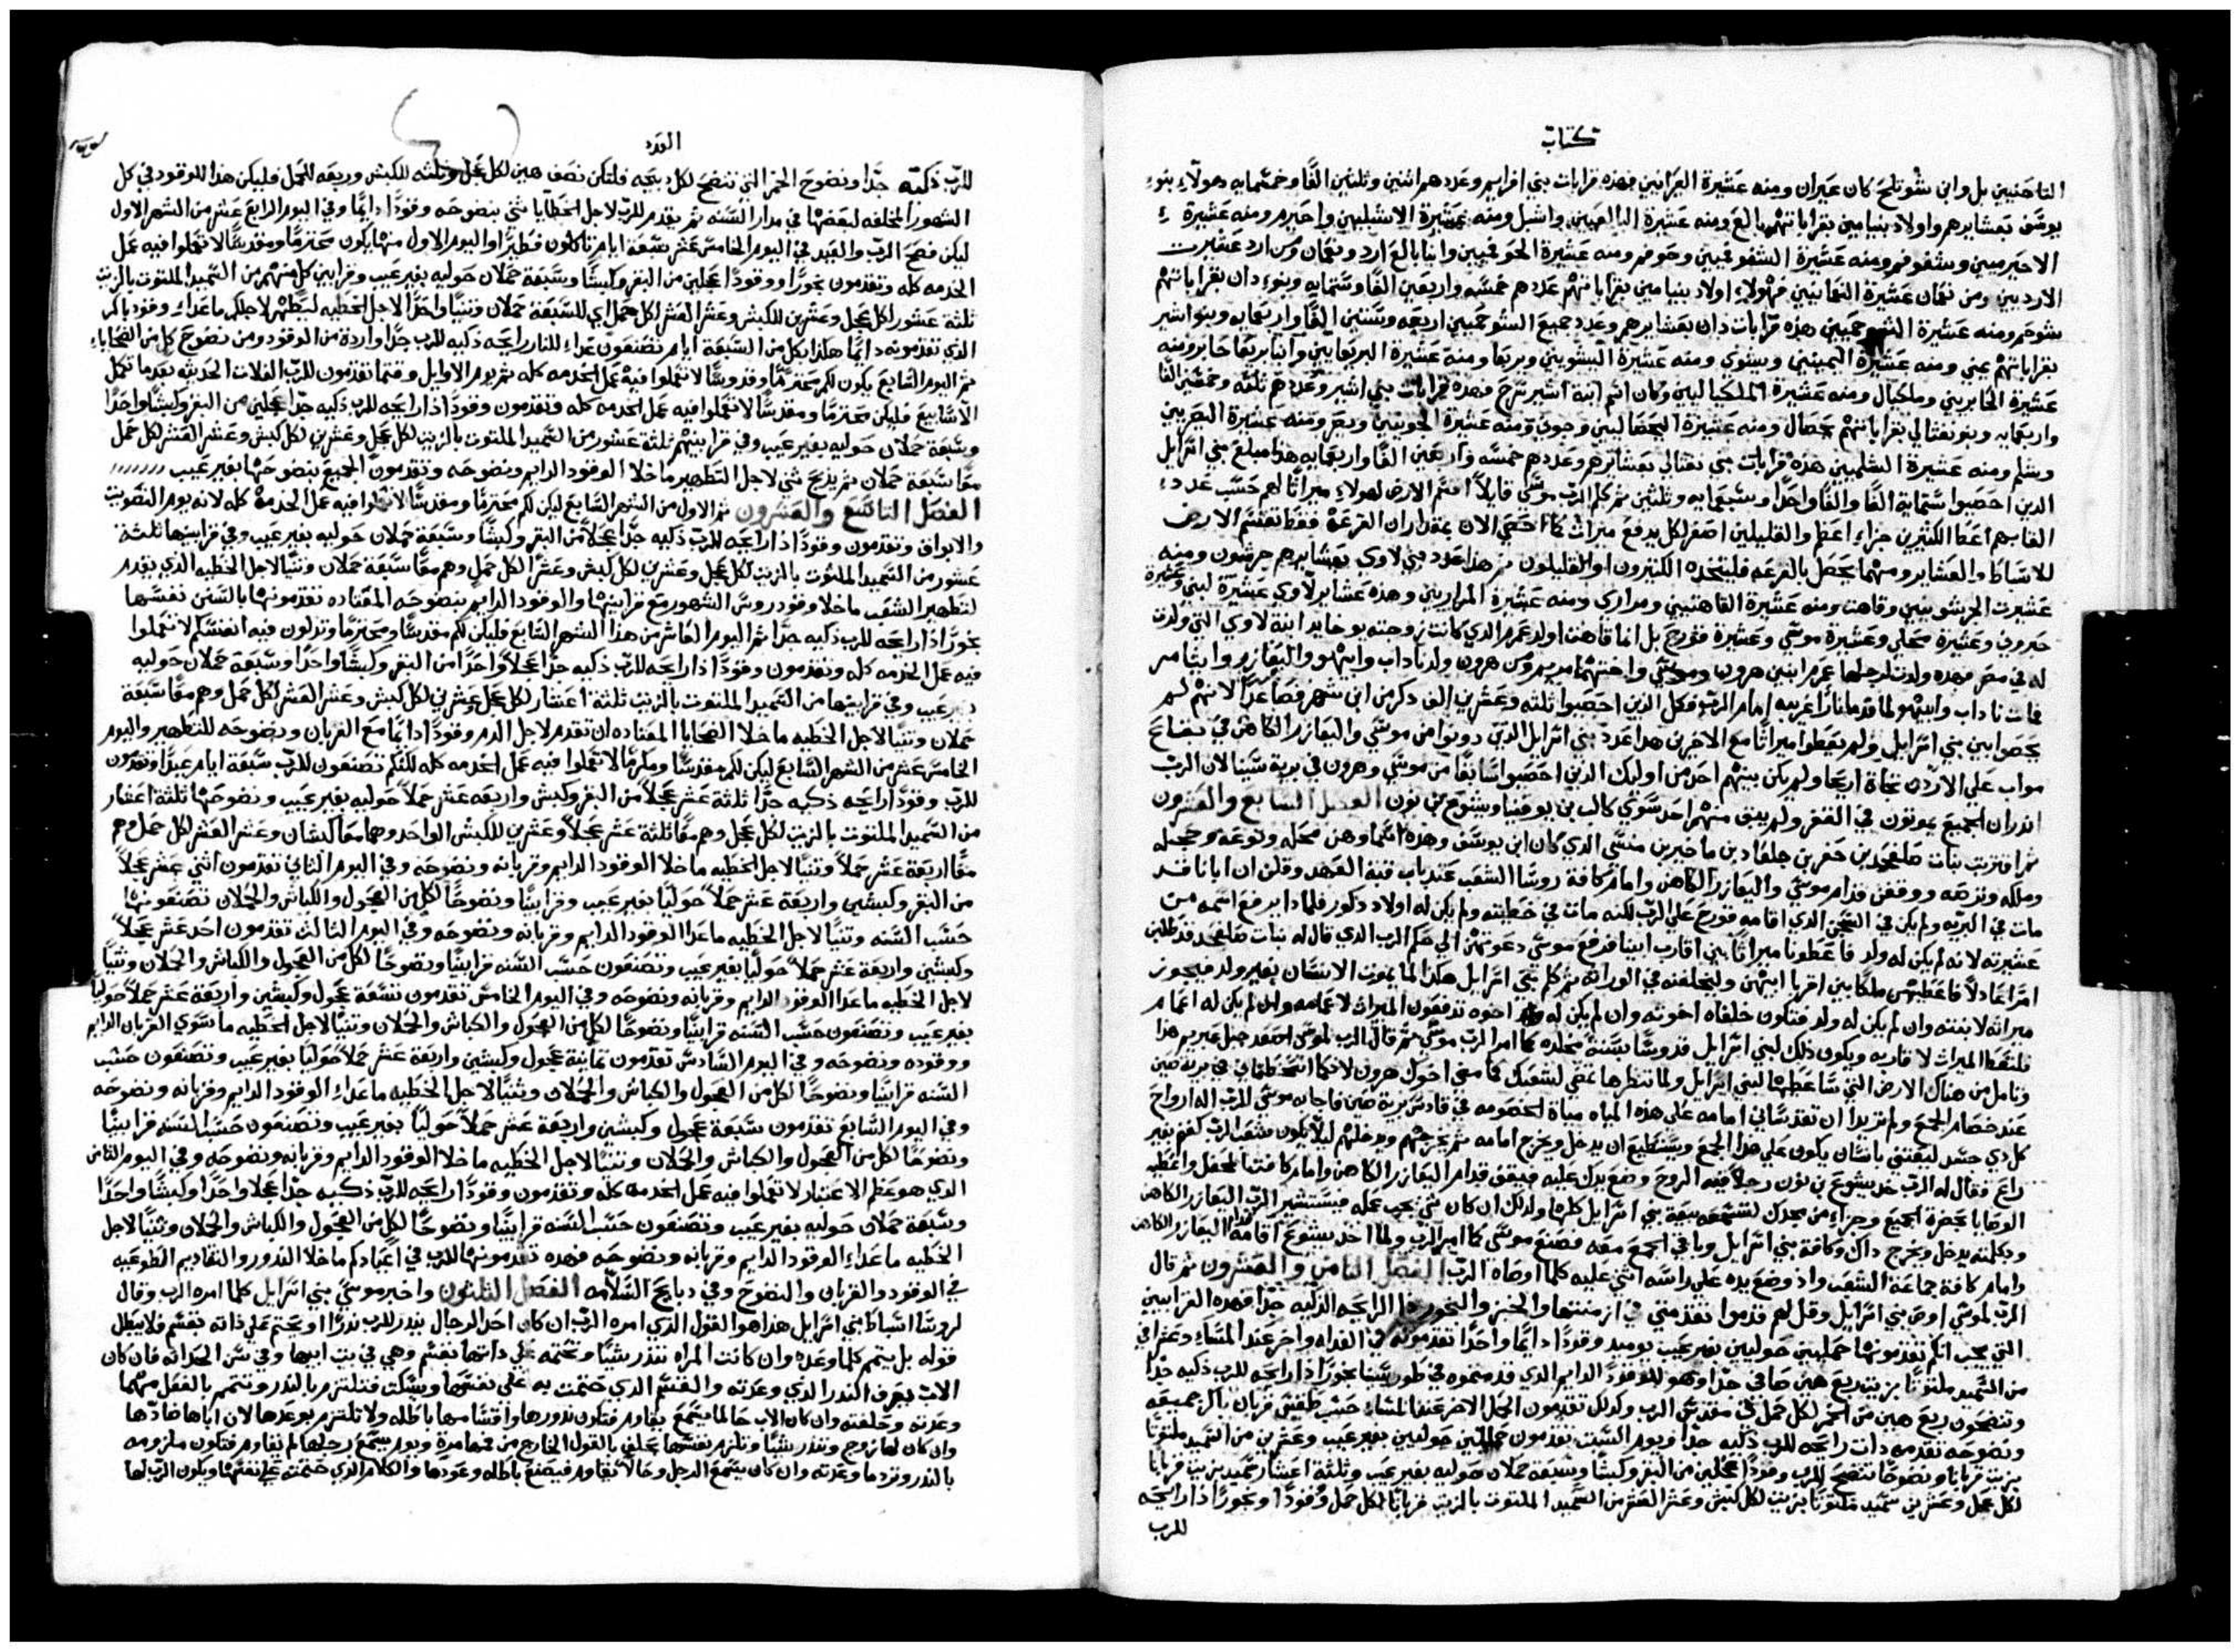 كتاب
التاحنيين بل وابن شوتلح كان عيران ومنه عشيرة العيرانيين فهذه قرابات بني افرايم وعددهم اثنين وثلثين الفًا وخمسمايه وهولاء بنو
يوسف بعشايرهم واولاد بنيامين بقراباتهم بالع ومنه عشيرة البالعيين واشبل ومنه عشيرة الاشبليين واحيرم ومنه عشيرة
الاحيرميين وشفوفم ومنه عشيرة الشفوفميين وحوفم ومنه عشيرة الحوفميين وابنا بالع ارد ونعمان ومن ارد عشيرت
الارديين ومن نعمان عشيرة النعمانيين فهولاء اولاد بنيامين بقراباتهم عددهم خمسه واربعين الفًا وستمايه وبنو دان بقراباتهم
شوحم ومنه عشيرة الشوحميين هذه قرابات دان بعشايرهم وعدد جميع الشوحميين اربعه وستين الفًا واربعمايه وبنو اشير
بقراباتهم يمني ومنه عشيرة اليمينيي ويشوي ومنه عشيرة اليشويين وبريعا ومنه عشيرة البريعايين وابنا بريعا حابر ومنه
عشيرة الحابريني وملكيال ومنه عشيرة الملكياليين وكان اسم ابنة اشير سرح فهذه قرابات بني اشير وعددهم ثلثه وخمسين الفًا
واربعمايه وبنو نفتالي بقراباتهم يحصال ومنه عشيرة اليحصاليين وجوني ومنه عشيرة الجونيين ويصر ومنه عشيرة اليصريين
وشلم ومنه عشيرة الشلميين هذه قرابات بني نفتالي بعشايرهم وعددهم خمسه واربعين الفًا واربعمايه هذا مبلغ بني اسرايل
الذين احصبوا ستماية الفًا والفًا واحدًا وسبعمايه وثلثين ثم كلم الرب موسى قايلاً اقسم الارض لهولاء ميراثًا لهم حسب عدد
القابهم اعطا الكثيرين جزاء اعظم والقليلين اصغر لكل يدفع ميراث كما احصي الان بمقدار ان القرعة فقط تقسم الارض
للاسباط والعشاير ومهما يحصل بالقرعه فليتخذه الكثيرون او القليلون ثم هذا عدد بني لاوي بعشايرهم جرشون ومنه
عشيرت الجرشونيين وقاهت ومنه عشيرة القاهتيين ومراري ومنه عشيرة المراريين وهذه عشاير لاوي عشيرة لبني وعشيرة
حبروني وعشيرة محلي وعشيرة موسي وعشيرة قورح بل اما قاهت اولد عمرم الذي كانت زوجته يوخابد ابنة لاوي التي ولدت
له في مصر فهذه ولدت لرجلها عمرم ابنين هرون وموسى واختهما مريم ومن هرون ولد ناداب وابيهو واليعازر وايثامر
فمات ناداب وابيهو لما قدما نارًا غريبه امام الرب فكل الذين احصبوا ثلثه وعشرين الف ذكر من ابن شهر فصاعدًا لانهم لم
يحصوا بين بني اسرايل ولم يعطوا ميراثًا مع الاخرين هذا عدد بني اسرايل الذين دونوا من موسى واليعازر الكاهن في بقاع
مواب علي الاردن تجاة اريحا ولم يكن بينهم احد من اوليك الذين احصبوا سابقًا من موسي وهرون في برية سينا لان الرب
انذر ان الجميع يموتون في القفر ولم يبق منهم احد سوى كالب بن يوفنيا ويشوع بن نون الفصل السابع والعشرون
ثم اقتربت بنات صلفحد بن حفر بن جلعاد بن ماخير بن منسى الذي كان ابن يوسف وهذه اسماوهن محله ونوعه وحجله
وملكه وترصه ووقفن قدام موسى واليعازر الكاهن وامام كافة روسا الشعب عند باب قبة العهد وقلن ان ابانا قد
مات في البريه ولم يكن في السجس الذي اقامه قورح على الرب لكنه مات في خطيته ولم يكن له اولاد ذكور فلماذا يرفع اسمه من
عشيرته لانه لم يكن له ولد فاعطونا ميراثًا بين اقارب ابينا فرفع موسى دعوتهن الي حكم الرب الذي قال له بنات صلفحد قد طلبن
امرًا عادلاً فاعطيهن ملكًا بين اقربا ابيهن وليخلفنه في الوراثه ثم كلم بني اسرايل هكذا لما يموت الانسان بغير ولد فيجوز
ميراثه لابنته وان لم يكن له ولد فتكون خلفاه اخوته وان لم يكن له اخوه تدفعون الميراث لاعمامه وان لم يكن له اعمام
فلتعط الميراث لاقاربه ويكون ذلك لبني اسرايل قدوسًا بسنة مخلده كما امر الرب موسى ثم قال الرب لموسى اصعد جبل عبريم هذا
وتامل من هناك الارض التي ساعطيها لبني اسرايل ولما تنظرها تمضي لشعبك كما مضى اخوك هرون لانكما اسخطتماني في برية صين
عند خصام الجمع ولم تريدا ان تقدساني امامه علي هذه المياه مياة الخصومه في قادس برية صين فاجابه موسى الرب اله ارواح
كل ذي جسد ليعتني بانسان يكون على هذا الجمع ويستطيع ان يدخل ويخرج امامه ثم يخرجهم ويدخلهم ليلا يكون شعب الرب كغنم بغير
راع فقال له الرب خذ يشوع بن نون رجلاً فيه الروح وضع يدك عليه فيقف قدام اليعازر الكاهن وامام كافة المحفل واعطيه
الوصايا بحضرة الجميع وجزاء من مجدك لتسمعه بيعة بني اسرايل كلها ولذلك ان كان شي يجب عمله فيستشير الرب اليعازر الكاهن
وبكلمته يدخل ويخرج ذاك وكافة بني اسرايل وباقي الجمع معه فصنع موسى كما امر الرب ولما اخذ يشوع اقامه قدام اليعازر الكاهن
وامام كافة جماعة الشعب واذ وضع يده على راسه اثني عليه كلما اوصاه الرب الفصل الثامن والعشرون ثم قال
الرب لموسى اوص بني اسرايل وقل لهم قدموا تقدمتي في ازمنتها والخبز والبخور ذا الرايحه الذكيه جدًا فهذه القرابين
التي يجب انكم تقدمونها حمليين حوليين بغير عيب يوميد وقودًا دايمًا واحدًا تقدمونه في الغداه واخر عند المساء وعشرا في
من السميد ملتوتًا بزيت ربع هين صافي جدًا وهو للوقود الدايم الذي قدمتموه في طور سينا بخورًا ذا رايحه للرب ذكيه جدًا
وتنضحون ربع هين من الخمر لكل حمل في مقدس الرب وكذلك تقدمون الحمل الاخر عند المساء حسب طقس قربان باكر جميعه
ونضوحه تقدمه ذات رايحه للرب ذكيه جدًا ويوم السبت تقدمون حملين حوليين بغير عيب وعشرين من السميد ملتوتًا
بزيت قربانًا ونضوحًا تنضح للرب وقودًا عجلين من البقر وكبشًا وسبعة حملان حوليه بغير عيب وثلثة اعشار سميد بزيت قربانًا
لكل عجل وعشرين سميد ملتوتًا بزيت لكل كبش وعشر العشر من السميد الملتوت بالزيت قربانًا لكل حمل وقودًا وبخورًا ذا رايحه
للرب
العدد
للرب ذكيه جدًا ونضوح الخمر التي تنضح لكل ذبيحه فلتكن نصف هين لكل عجل وثلثه للكبش وربعه للحمل فليكن هذا للوقود في كل
الشهور المخلفه لبعضها في مدار السنه ثم يقدم للرب لاجل الخطايا تني بنضوحه وقودًا دايمًا وفي اليوم الرابع عشر من الشهر الاول
ليكن فصح الرب والعيد في اليوم الخامس عشر سبعة ايام تاكلون فطيرًا واليوم الاول منها يكون محترمًا ومقدسًا لا تعملوا فيه عمل
الخدمه كله وتقدمون بخورًا ووقودًا عجلين من البقر وكبشًا وسبعة حملان حوليه بغير عيب وقرابين كل منهم من السميد الملتوت بالزيت
ثلثة عشور لكل عجل وعشرين للكبش وعشر العشر لكل حمل اي للسبعة حملان وتنيًا واحدًا لاجل الخطيه ليطهر لاجلكم ما عداء وقود باكر
الذي تقدمونه دايمًا هكذا بكل من السبعة ايام تصنعون غداء للنار رايحه ذكيه للرب جدًا واردة من الوقود ومن نضوح كل من الضحاياء
ثم اليوم السابع يكون لكم محترمًا وقدوسًا لا تعملوا فيه عمل الخدمه كله ثم يوم الاوايل وقتما تقدمون للرب الغلات الحديثه بعد ما تكمل
الاسابيع فليكن محترمًا ومقدسًا لا تعملوا فيه عمل الخدمه كله وتقدمون وقودًا ذا رايحه للرب ذكيه جدًا عجلين من البقر وكبشًا واحدًا
وسبعة حملان حوليه بغير عيب وفي قرابينهم ثلثة عشور من السميد الملتوت بالزيت لكل عجل وعشرين لكل كبش وعشر العشر لكل حمل
معًا سبعة حملان ثم يذبح تني لاجل التطهير ما خلا الوقود الدايم ونضوحه وتقدمون الجميع بنضوحها بغير عيب
الفصل التاسع والعشرون ثم الاول من الشهر السابع ليكن لكم محترمًا ومقدسًا لا تعملوا فيه عمل الخدمة كله لانه يوم التصويت
والابواق وتقدمون وقودًا ذا رايحه للرب ذكيه جدًا عجلاً من البقر وكبشًا وسبعة حملان حوليه بغير عيب وفي قرابينها ثلثة
عشور من السميد الملتوت بالزيت لكل عجل وعشرين لكل كبش وعشرًا لكل حمل وهم معًا سبعة حملان وتنيًا لاجل الخطيه الذي يقدم
لتطهير الشعب ما خلا وقود روس الشهور مع قرابينها والوقود الدايم بنضوحه المعتاده تقدمونها بالسنن نفسها
بخورًا ذا رايحه للرب ذكيه جدًا ثم اليوم العاشر من هذا الشهر السابع فليكن لكم مقدسًا ومحترمًا وتذلون فيه انفسكم لا تعملوا
فيه عمل الخدمه كله وتقدمون وقودًا ذا رايحه للرب ذكيه جدًا عجلاً واحدًا من البقر وكبشًا واحدًا وسبعة حملان حوليه
بغير عيب وفي قرابينها من السميد الملتوت بالزيت ثلثة اعشار لكل عجل وعشرين لكل كبش وعشر العشر لكل حمل وهم معًا سبعة
حملان وتنيًا لاجل الخطيه ما خلا الضحايا المعتاده ان تقدم لاجل الدم وقودًا دايمًا مع القربان ونضوحه للتطهير واليوم
الخامس عشر من الشهر السابع ليكن لكم مقدسًا ومكرمًا لا تعملوا فيه عمل الخدمه كله لكنكم تصنعون للرب سبعة ايام عيدًا وتقدمون
للرب وقودًا رايحه ذكيه جدًا ثلثة عشر عجلاً من البقر وكبش واربعه عشر حملاً حوليه بغير عيب ونضوحها ثلثة اعشار
من السميد الملتوت بالزيت لكل عجل وهم معًا ثلثة عشر عجلاً وعشرين للكبش الواحد وهما معًا كبشان وعشر العشر لكل حمل وهم
معًا اربعة عشر حملاً وتنيًا لاجل الخطيه ما خلا الوقود الدايم وقربانه ونضوحه وفي اليوم الثاني تقدمون اثني عشر عجلاً
من البقر وكبشين واربعة عشر حملاً حوليًا بغير عيب وقرابينًا ونضوحًا لكل من العجول والكباش والحملان تصنعونها
حسب السنه وتنيًا لاجل الخطيه ما عدا الوقود الدايم وقربانه ونضوحه وفي اليوم الثالث تقدمون احد عشر عجلاً
وكبشين واربعة عشر حملاً حوليًا بغير عيب وتصنعون حسب السنه قرابينًا ونضوحًا لكل من العجول والكباش والحملان وتنيًا
لاجل الخطيه ما عدا الوقود الدايم وقربانه ونضوحه وفي اليوم الخامس تقدمون تسعة عجول وكبشين واربعة عشر حملاً حوليًا
بغير عيب وتصنعون حسب السنه قرابينًا ونضوحًا لكل من العجول والكباش والحملان وتنيًا لاجل الخطيه ما سوى القربان الدايم
ووقوده ونضوحه وفي اليوم السادس تقدمون ثمانية عجول وكبشين واربعة عشر حملاً حوليًا بغير عيب وتصنعون حسب
السنه قرابينًا ونضوحًا لكل من العجول والكباش والحملان وتنيًا لاجل الخطيه ما عداء الوقود الدايم وقربانه ونضوحه
وفي اليوم السابع تقدمون سبعة عجول وكبشين واربعة عشر حملاً حوليًا بغير عيب وتصنعون حسب السنه قرابينًا
ونضوحًا لكل من العجول والكباش والحملان وتنيًا لاجل الخطيه ما خلا الوقود الدايم وقربانه ونضوحه وفي اليوم الثامن
الذي هو عظم الاعتبار لا تعملوا فيه عمل الخدمه كله وتقدمون وقودًا رايحه للرب ذكيه جدًا عجلا واحدًا وكبشًا واحدًا
وسبعة حملان حوليه بغير عيب وتصنعون حسب السنه قرابينًا ونضوحًا لكل من العجول والكباش والحملان وتنيًا لاجل
الخطيه ما عداء الوقود الدايم وقربانه ونضوحه فهذه تقدمونها للرب في اعيادكم ما خلا النذور والتقاديم الطوعيه
في الوقود والقربان والنضوح وفي ذبايح السلامه الفصل الثلثون واخبر موسي بني اسرايل كلما امره الرب وقال
لروسا اسباط بني اسرايل هذا هو القول الذي امره الرب ان كان احد الرجال ينذر للرب نذرًا او يحتم علي ذاته بقسم فلا يبطل
قوله بل يتمم كلما وعده وان كانت المراه تنذر شيًا وتحتمه علي ذاتها بقسم وهي في بيت ابيها وفي سن الحداثه فان كان
الاب يعرف النذر الذي وعدته والقسم الذي حتمت به على نفسها ويسكت فتلتزم بالنذر وتتمم بالفعل مهما
وعدته وحلفته وان كان الاب حالما يسمع يقاوم فتكون نذورها واقسامها باطله ولا تلتزم بوعدها لان اباها ضادها
وان كان لها زوج وتنذر شيًا وتلزم نفسها بحلف بالقول الخارج من فمها مرة ويوم يسمع رجلها لم يقاوم فتكون ملزومه
بالنذر وترد ما وعدته وان كان يسمع الرجل وحالاً يقاوم فيصنع باطله وعودها والكلام الذي حتمته علي نفسها ويكون الرب لها